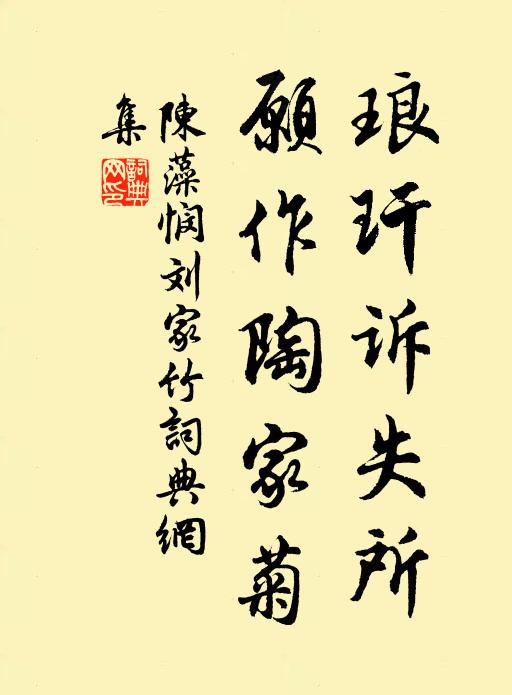 琅玕诉失所
願作陶家菊
陳藻悯刘家竹詞典網
集
詞典
网印